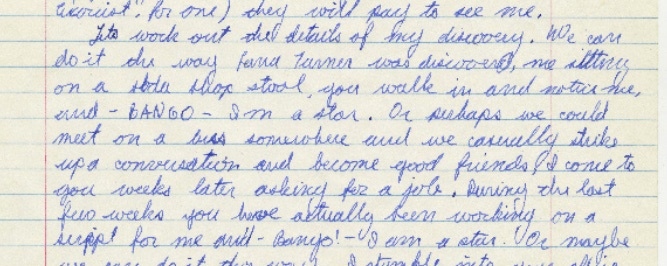 Exorcist", for one) they will pay to see me.
Lets work out the details of my discovery. We can
do it the way Lana Turner was discovered, me sitting
on a soda shop stool, you walk in and notice me,
and - BANGO - I'm a star. Or perhaps we could
meet on a bus somewhere and we casually strike
up a conversation and become good friends, I come to
you weeks later asking for a job. During the last
few weeks you have actually been working on a
script for me and - Bango! - I am a star. Or maybe
we can do it this way. I stumble into your office